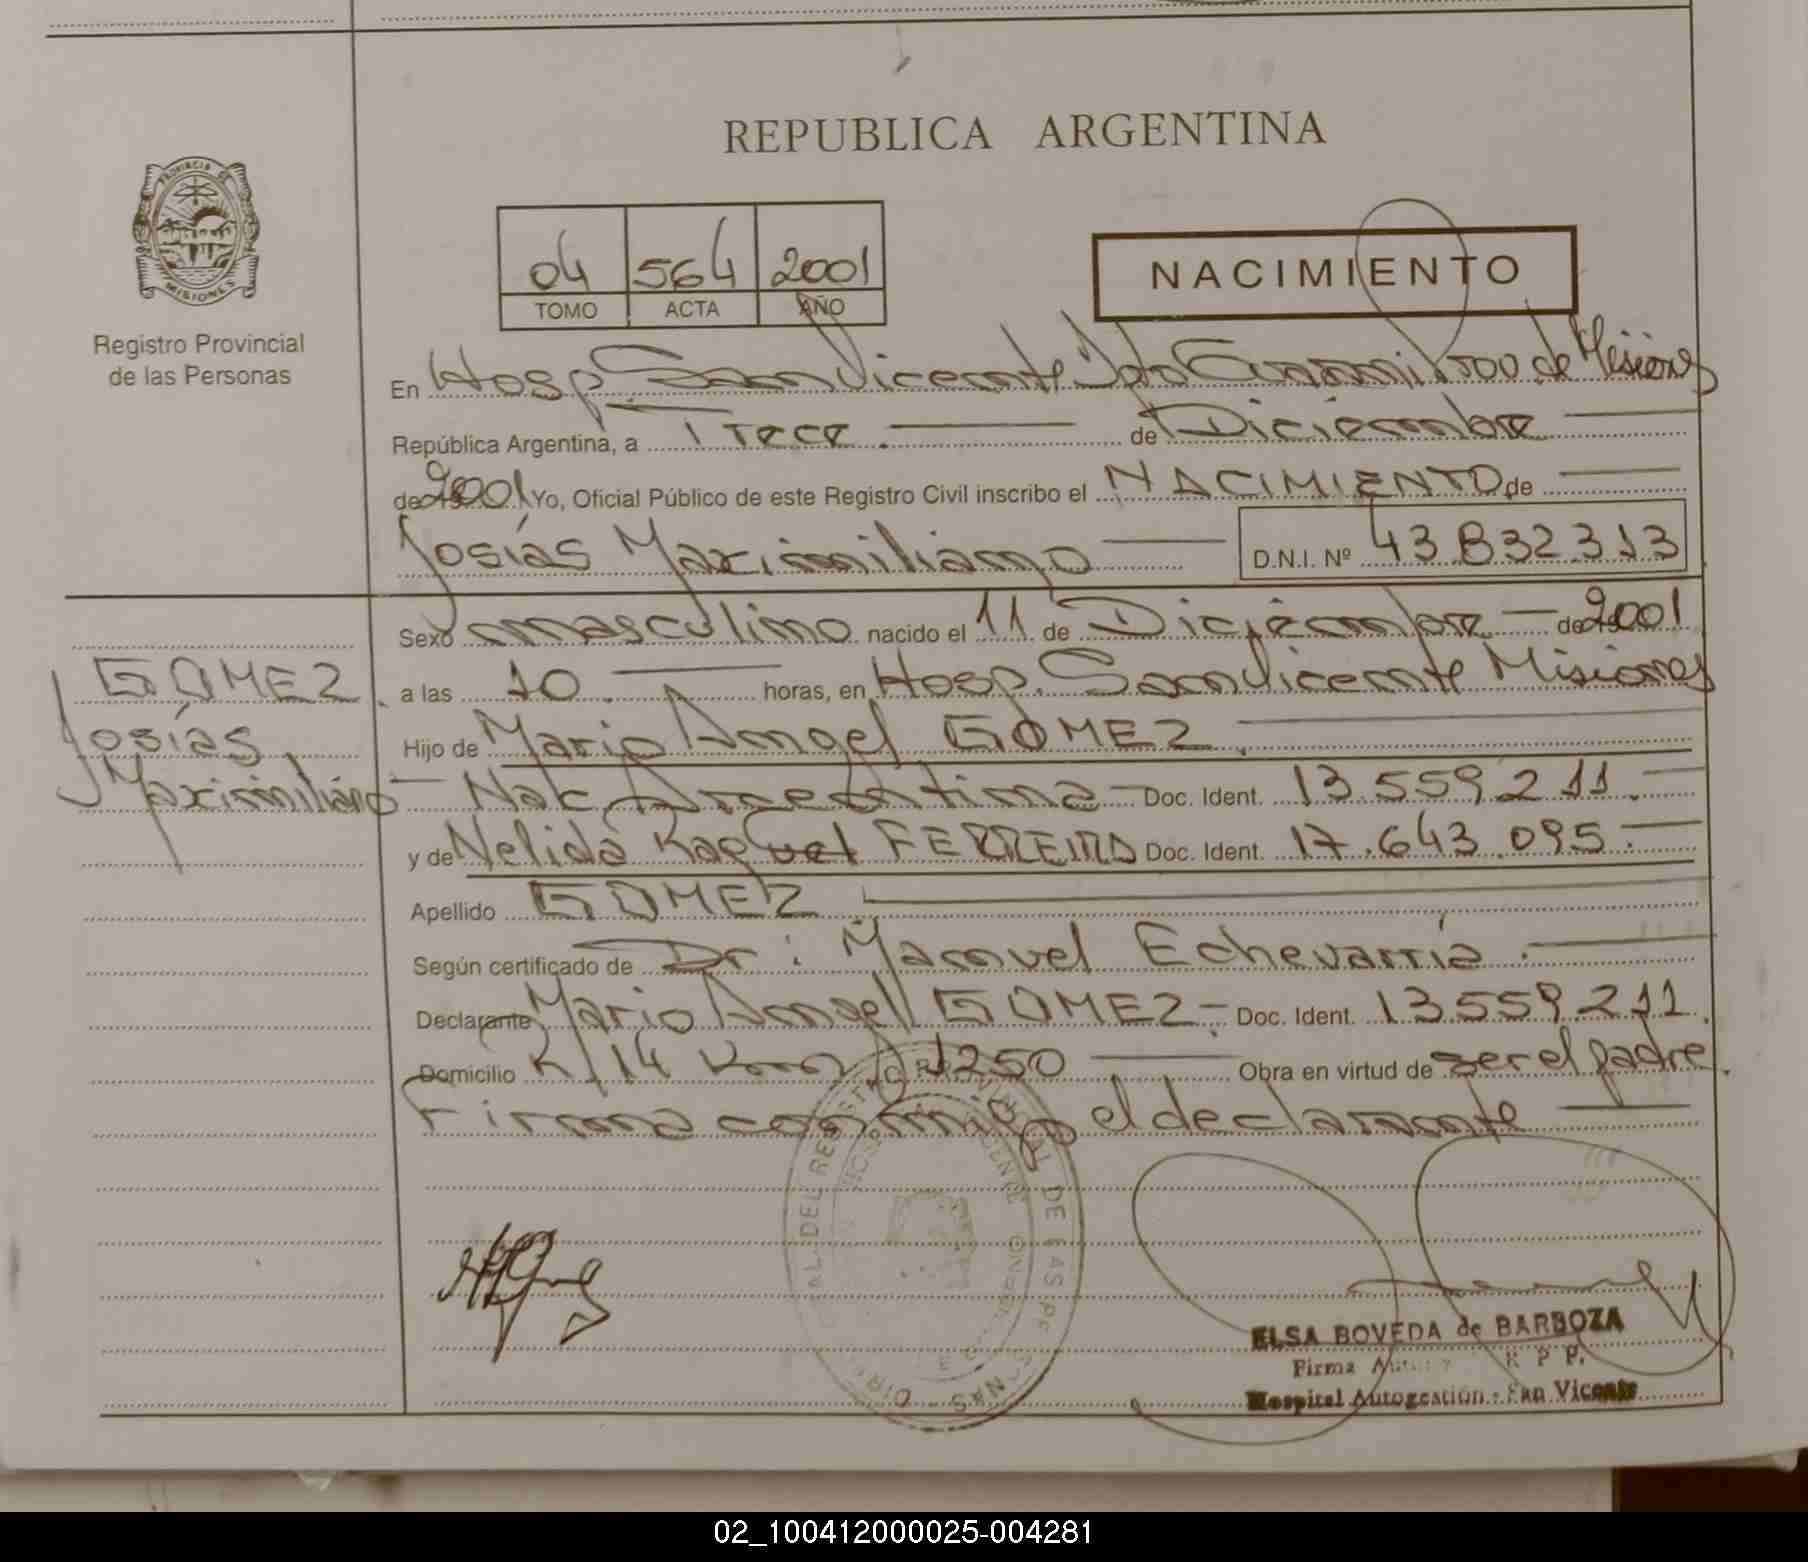 REPUBLICA ARGENTINA
PROVINCIA DE
MISIONES
Registro Provincial
de las Personas
04 564 2001
TOMO ACTA AÑO
NACIMIENTO
En Hosp. San Vicente Dpto Guaraní Prov de Misiones
República Argentina, a Trece. de Diciembre
de 2001 Yo, Oficial Público de este Registro Civil inscribo el NACIMIENTO de
Josías Maximiliano D.N.I. Nº 43.832.313
Sexo masculino nacido el 11 de Diciembre de 2001
a las 10 horas, en Hosp. San Vicente Misiones
Hijo de Mario Angel GOMEZ.
Nac Argentina Doc. Ident. 13.559.211.
y de Nelida Raquel FERREIRA Doc. Ident. 17.643.095.
Apellido GOMEZ
Según certificado de Dr: Manuel Echevarría.
Declarante Mario Angel GOMEZ. Doc. Ident. 13.559.211.
Domicilio R/14 Km 1250 Obra en virtud de ser el padre.
Firma conmigo el declarante
GOMEZ.
Josías
Maximiliano
ELSA BOVEDA de BARBOZA
Firma R P P.
Hospital Autogestión - San Vicente
02_100412000025-004281